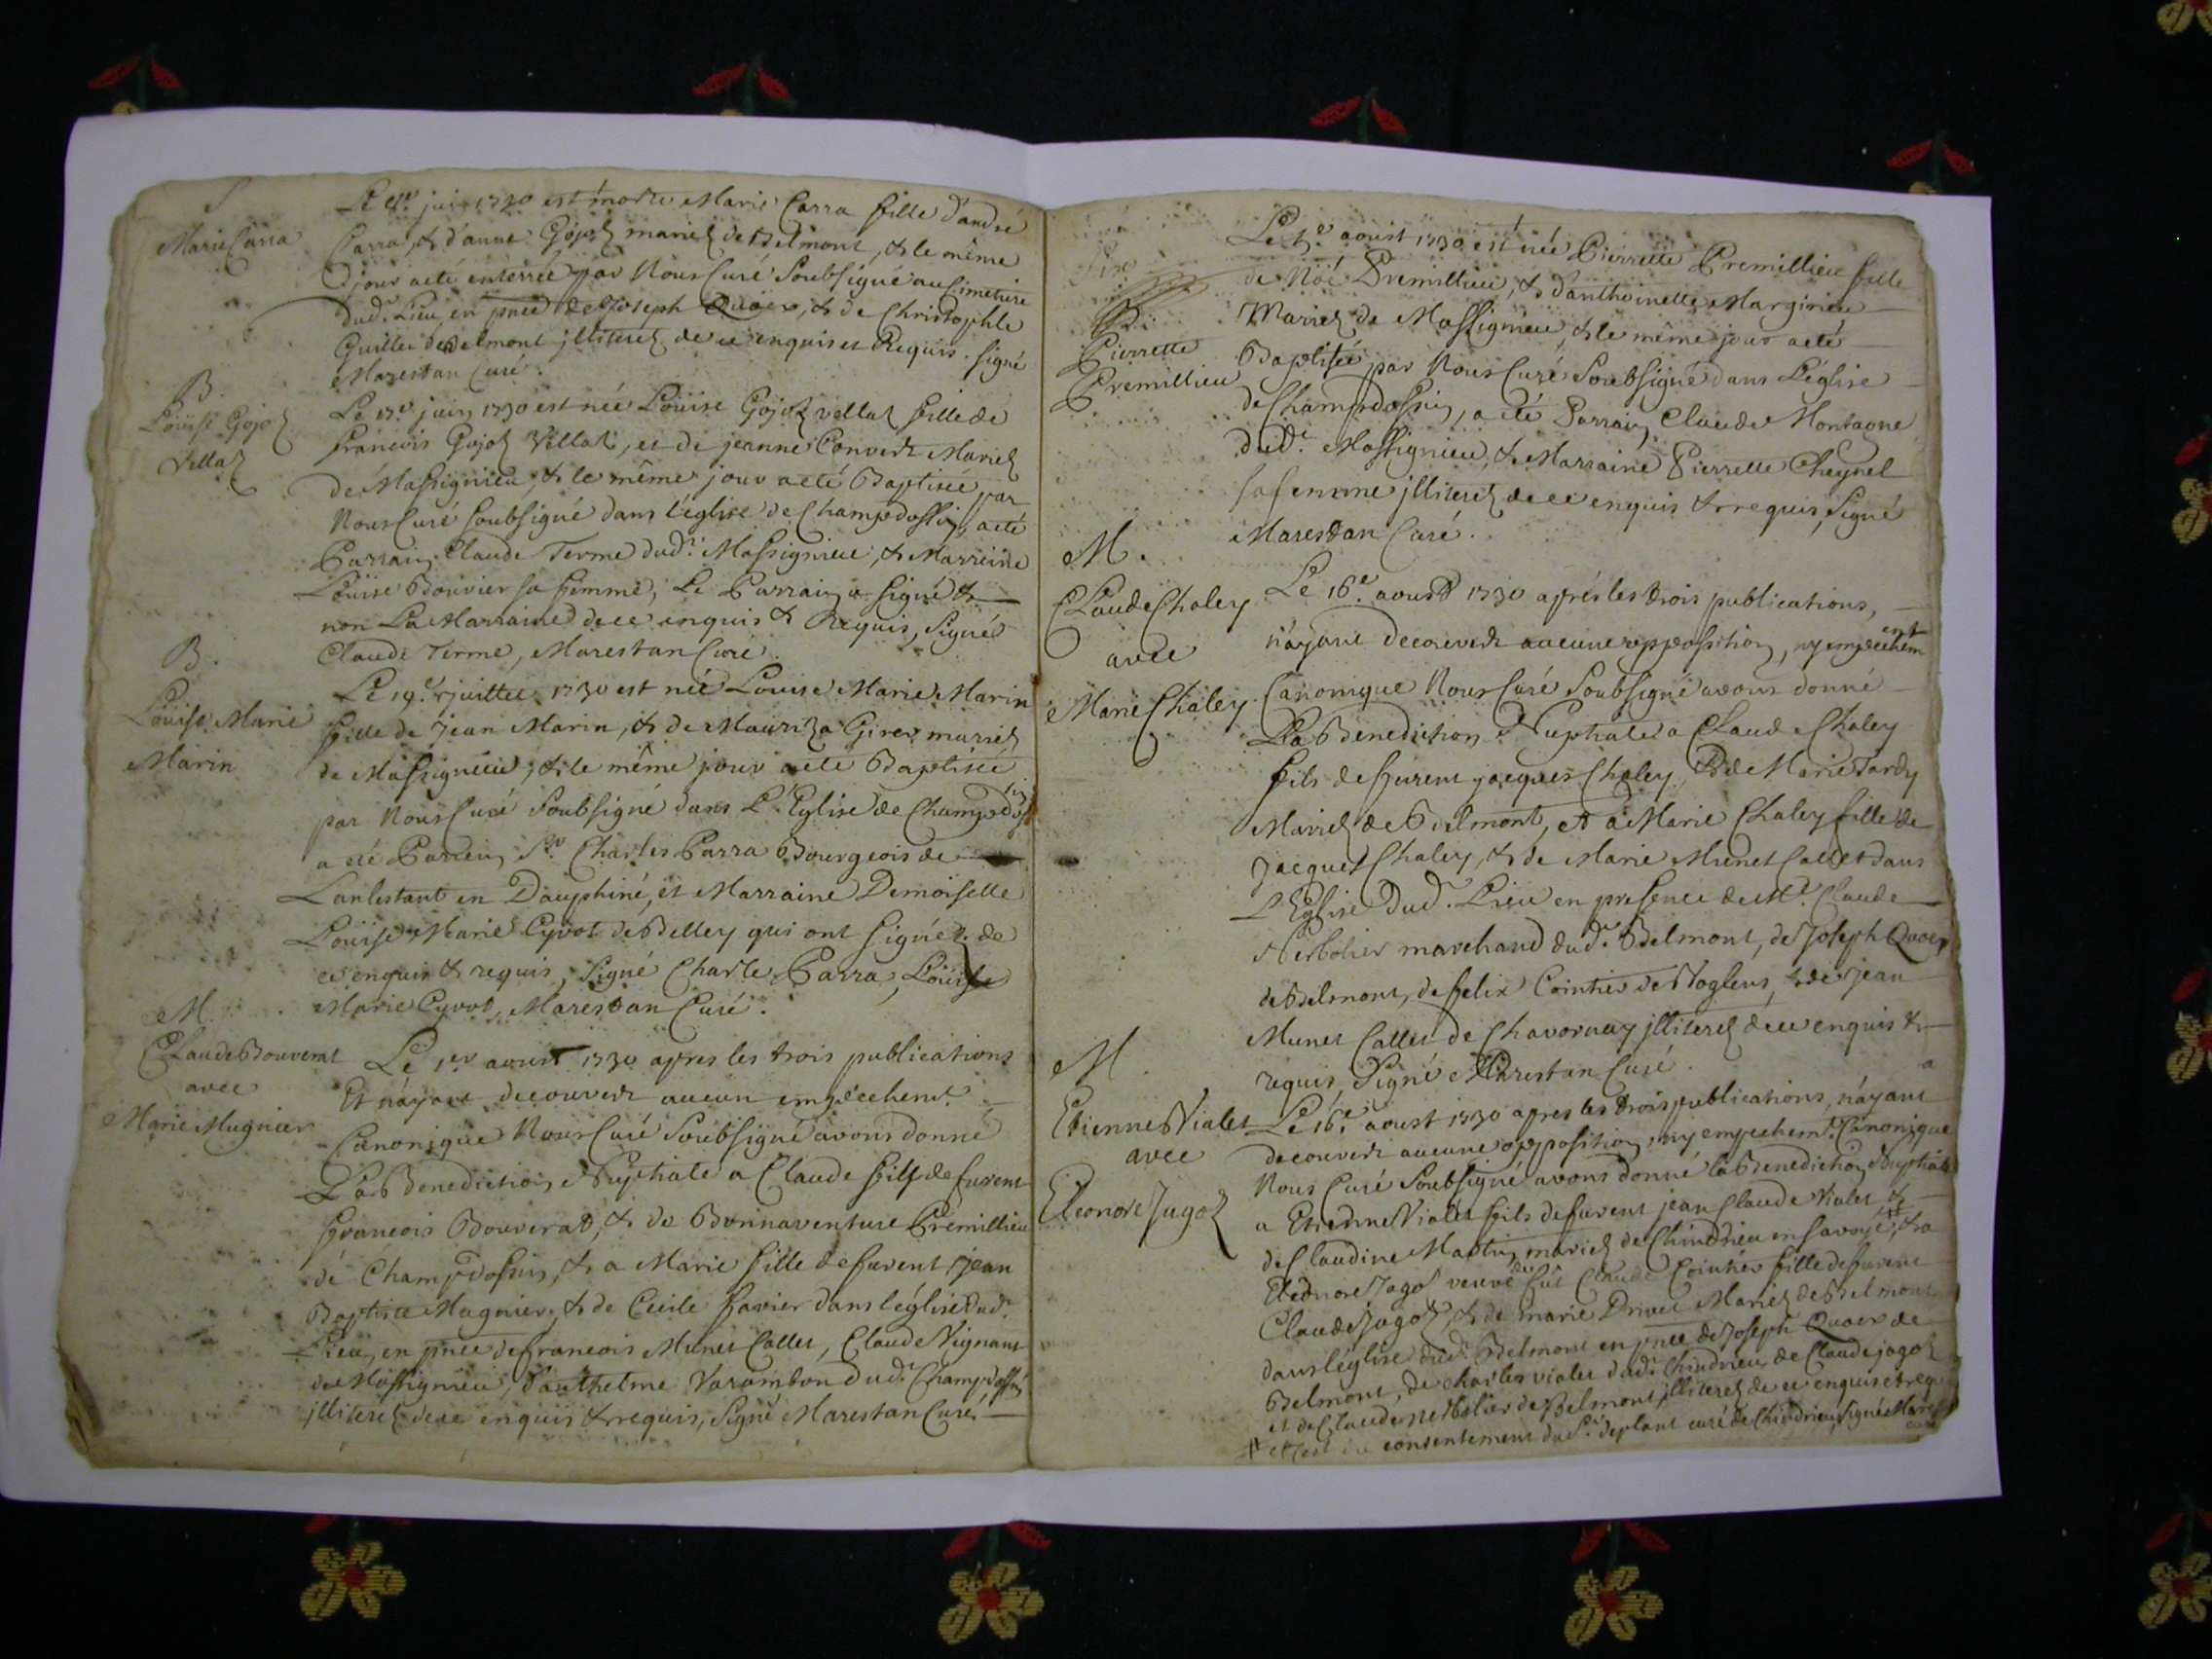 S
Marie Carra
Le juin 1730 est morte Marie Carra fille d'andré
Carra, & d'anne Gojoz mariez de Belmont, & le même
jour a eté enterrée par Nous Curé Soubsigné au Simetiere
dud.t Lieu en pnce de Joseph Quoex, & de Christophle
Guillet de Belmont jlliterez de ce enquis et Requis. signé
Marestan Curé.
B.
Loüise Gojoz
Vellaz
Le 17.e juin 1730 est née Loüise Gojoz vellaz fille de
francois Gojoz Vellaz, et de jeanne Convert Mariez
de Massignieu, & le même jour a eté Baptisée par
Nous Curé soubsigné dans l'eglise de Champdossin, a eté
Parrain Claude Terme dud.t Massignieu, & Marreine
Loüise Bouvier sa femme, Le Parrain a signé &
non La Marraine de ce enquis & Requis, Signé
Claude Terme, Marestan Curé.
B.
Loüise Marie
Marin
Le 19.e juillet 1730 est née Louise Marie Marin
fille de Jean Marin, & de Mauriza Girer mariez
de Massignieu, & le même jour a eté Baptisée
par Nous Curé Soubsigné dans L'Eglise de Champdossin
a eté Parrein S.r Charles Parra Bourgeois de
Lanlestant en Dauphiné, et Marraine Demoiselle
Loüise Marie Cyvot de Belley qui ont signé de
ce enquis & requis, Signé Charle Parra, Loüise
Marie Cyvot, Marestan Curé.
M.
Claude Bouverat
avec
Marie Mugnier
Le 1.er aoust 1730 apres les trois publications
Et n'áyant decouvert aucun empéchemt.
Canonique Nous Curé Soubsigné avons donné
La Benediction Nuptiale a Claude fils de furent
francois Bouverat, & de Bonnaventure Premillieu
de Champdossin, & a Marie fille de furent jean
Baptiste Mugnier, & de Cecile favier dans l'église dud.t
Lieu, en pnce de francois Munet Callet, Claude Vignant
de Massignieu, d'anthelme Varambon dud.t Champdossin
jlliterez de ce enquis & requis, Signé Marestan Curé.
B.
Pierrette
Premillieu
Le aoust 1730 est née Pierrette Premillieu fille
de Noé Premillieu, & d'anthoinette Marginieu
Mariez de Massignieu, & le même jour a eté
Baptisée par Nous Curé Soubsigné dans L'église
de Champdossin, a eté Parrain Claude Montagne
dud.t Massignieu, & Marraine Pierrette Cheynel
sa femme jlliterez de ce enquis & requis, Signé
Marestan Curé.
M.
Claude Chaley
avec
Marie Chaley
Le 16.e aoust 1730 aprés les trois publications,
n'áyant decouvert aucune opposition, ny empechement
Canonique Nous Curé Soubsigné avons donné
La Benediction Nuptiale a Claude Chaley
fils de furent jacques Chaley, & de Marie Tardy
Mariez de Belmont, et a Marie Chaley fille de
Jacques Chaley, & de Marie Munet Callet dans
L'Eglise dud.t Lieu en presence de M.r Claude
Nerbolier marchand dud.t Belmont, de Joseph Quoex
de Belmont, de felix Cointier de Voglens, & de jean
Munet Callet de Chavornay jlliterez de ce enquis &
requis, Signé Marestan Curé.
M.
Etienne Vialet
avec
Eleonore Jugoz
Le 16.e aoust 1730 apres les trois publications, n'áyant
decouvert aucune opposition, ny empechemt. Canonique
Nous Curé Soubsigné avons donné la Benediction Nuptiale
a Etienne Vialet fils de furent jean Claude Vialet &
de Claudine Martin mariez de Chindrieu en savoye, & a
Eleonore Jagoz veuve du fût Claude Cointier fille de furent
Claude Jagoz, & de marie Drivet Mariez de Belmont
dans léglise dud.t Belmont en pnce de Joseph Quoex de
Belmont, de charles vialet dud.t Chindrieu de Claude jagoz
et de Claude Nerbolier de Belmont jlliterez de ce enquis et req
# et c'est du consentement du S.r deplant curé de Chindrieu, signé Marest